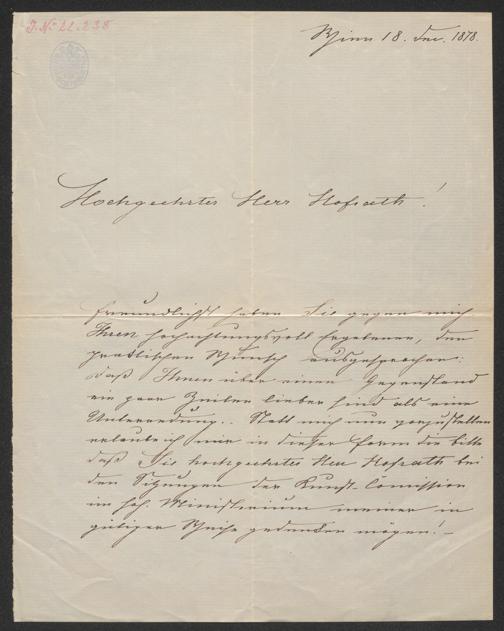 J.N. 22.238
Wien 18. Dec. 1878.
Hochgeehrter Herr Hofrath!
Freundlichst haben Sie gegen mich
Ihren hochachtungsvoll Ergebenen, den
praktischen Wunsch ausgesprochen:
daß Ihnen über einen Gegenstand
ein paar Zeilen lieber sind als eine
Unterredung.. Statt mich nun vorzustellen
erlaube ich mir in dieser Form die bitte
daß Sie hochgeehrter Herr Hofrath bei
den Sitzungen der Kunst-Comission
im hoh. Ministerium meiner in
gütiger Weise gedenken mögen! –